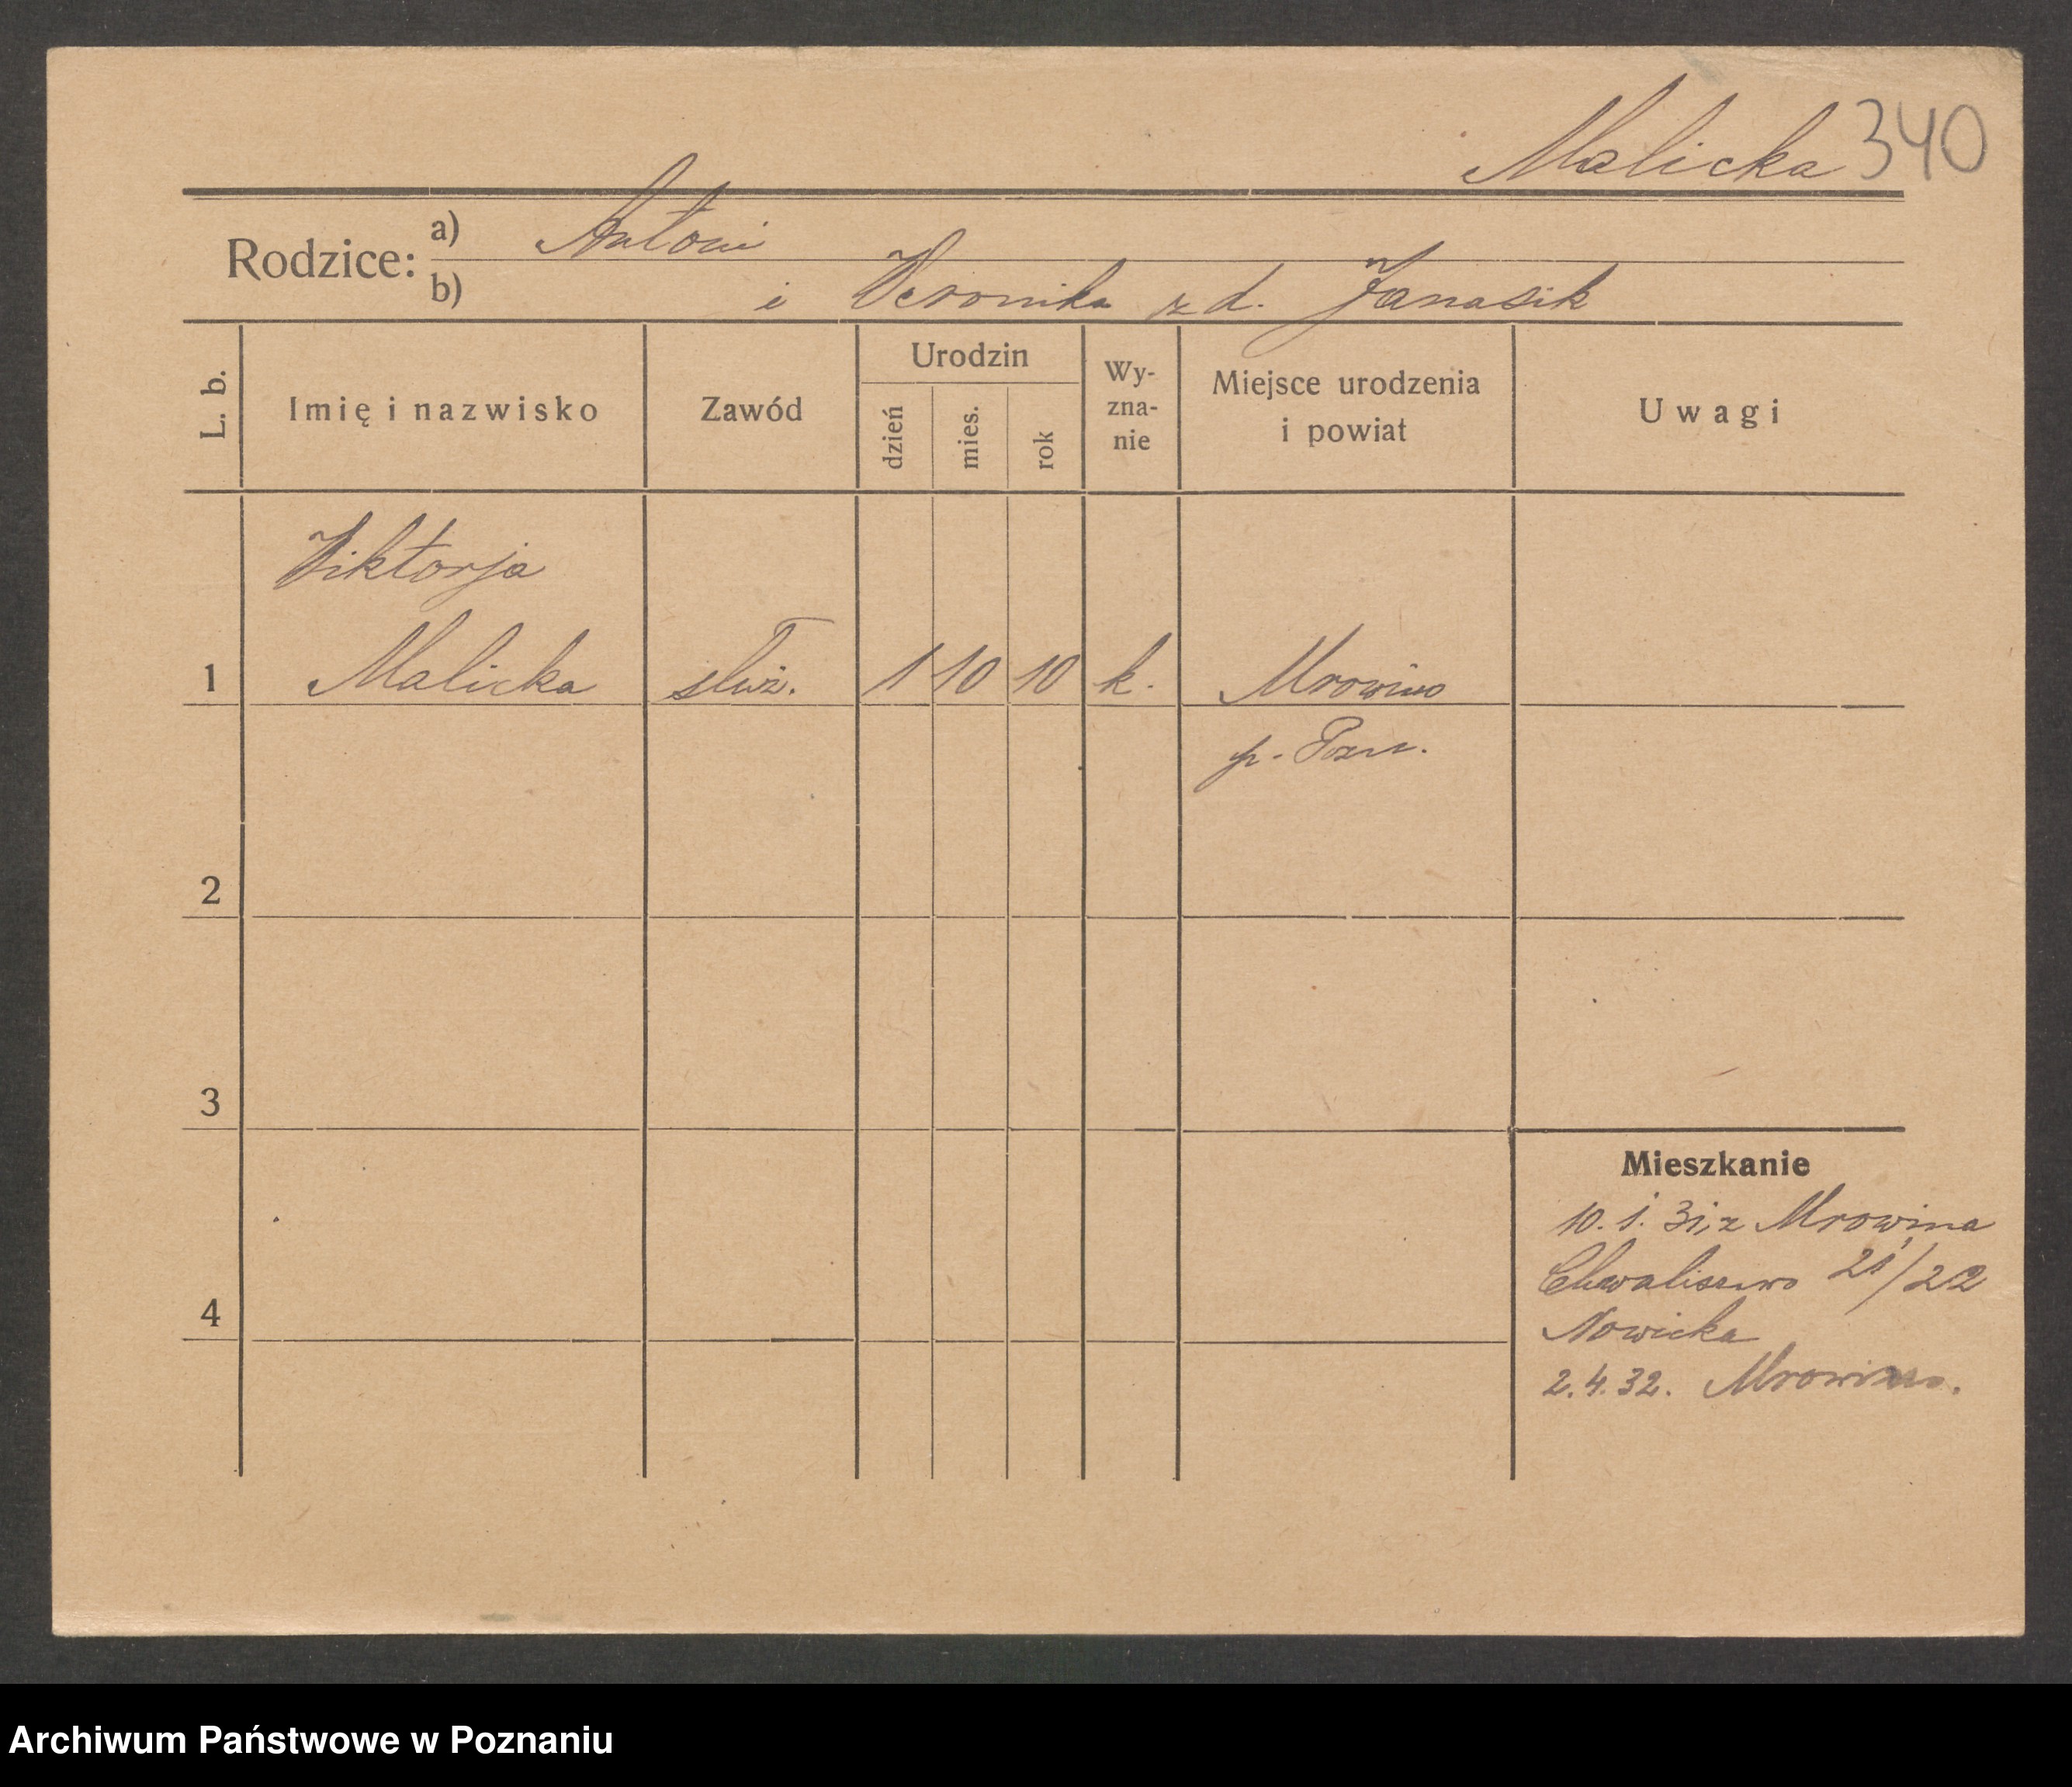 Malicka 340
Rodzice: a) Antoni
b) i Weronika z d. Janasik
L. b.
Imię i nazwisko
Zawód
Urodzin
dzień
mies.
rok
Wy-
zna-
nie
Miejsce urodzenia
i powiat
Uwagi
Wiktorja
1 Malicka służ. 1 10 10 k. Mrowino
p. Pozn.
2
3
4
Mieszkanie
10. 1. 31, z Mrowina
Chwaliszewo 21/22
Nowicka
2.4.32. Mrowino.
Archiwum Państwowe w Poznaniu